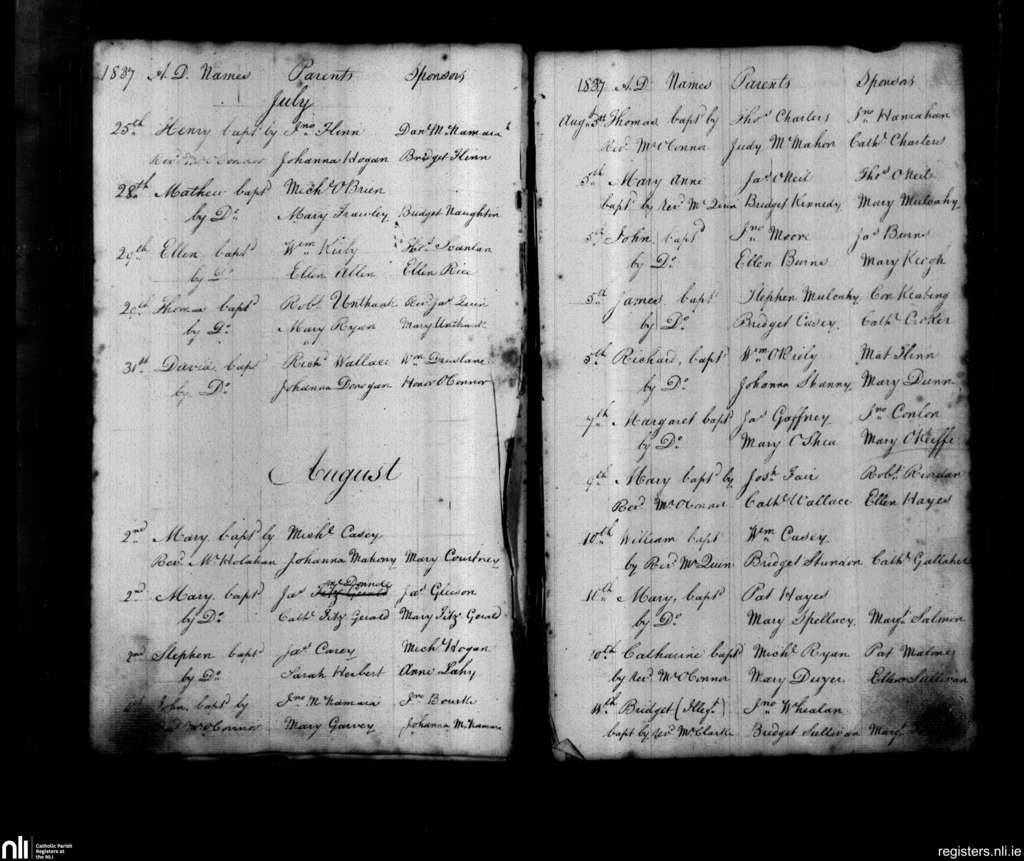 1837 A.D. Names Parents Sponsors
July
25th Henry bapt by Jno Flinn Danl McNamara
Revd Mr O'Connor Johanna Hogan Bridget Flinn
28th Mathew bapd Michl O'Brien
by Do Mary Frawley Bridget Naughtin
29th Ellen bapd Wm Kiely Scanlan
by Do Ellen Allen Ellen Rice
Thomas bapd Robt Unthank Revd Jas Quin
by Do Mary Ryan Mary Unthank
31st David bapd Richd Wallace Wm
by Do Johanna Donogan Honor O'Connor
August
2nd Mary bapd by Michl Casey
Revd Mr Holahan Johanna Mahony Mary Courtney
2nd Mary bapd Jas McDonnell Jas Gleeson
by Do Cathe Fitz Gerald Mary Fitz Gerald
2nd Stephen bapd Jas Carey Michl Hogan
by Do Sarah Herbert Anne Lahy
John bapd by Jno McNamara Jno Bourke
Mr O'Connor Mary Garvey Johanna McNamara
1837 A.D Names Parents Sponsors
Augt Thomas bapt by Thos Charters Jno Hanrahan
Revd Mr O'Connor Judy McMahon Cathe Charters
5th Mary Anne Jas O'Neil Thos O'Neil
bapt by revd Mr Quin Bridget Kennedy Mary Mulcahy
5th John bapd Jno Moore Jas Burns
by Do Ellen Burns Mary Keogh
5th James bapt Stephen Mulcahy Con Keating
by Do Bridget Casey Cathe Croker
5th Richard, bapt Wm O'Kiely Mat Flinn
by Do Johanna Shanny Mary Dunn
7th Margaret bapt Jas Gaffney Jno Conlon
by Do Mary O'Shea Mary O'Keiffe
9th Mary bapt by Josh Fair Robt Riordan
Revd Mr O'Connor Cathe Wallace Ellen Hayes
10th William bapt Wm Casey
by Revd Mr Quin Bridget Cathe Gallaher
10th Mary, bapt Pat Hayes
by Do Mary Spellacy Margt Salmon
10th Catharine bapd Michl Ryan Pat Maloney
by revd Mr O'Connor Mary Dwyer Ellen Sullivan
11th Bridget (Illegt) Jno Whealan
bapt by revd Mr Clarke Bridget Sullivan Mary
nli Catholic Parish
Registers at
the NLI
registers.nli.ie